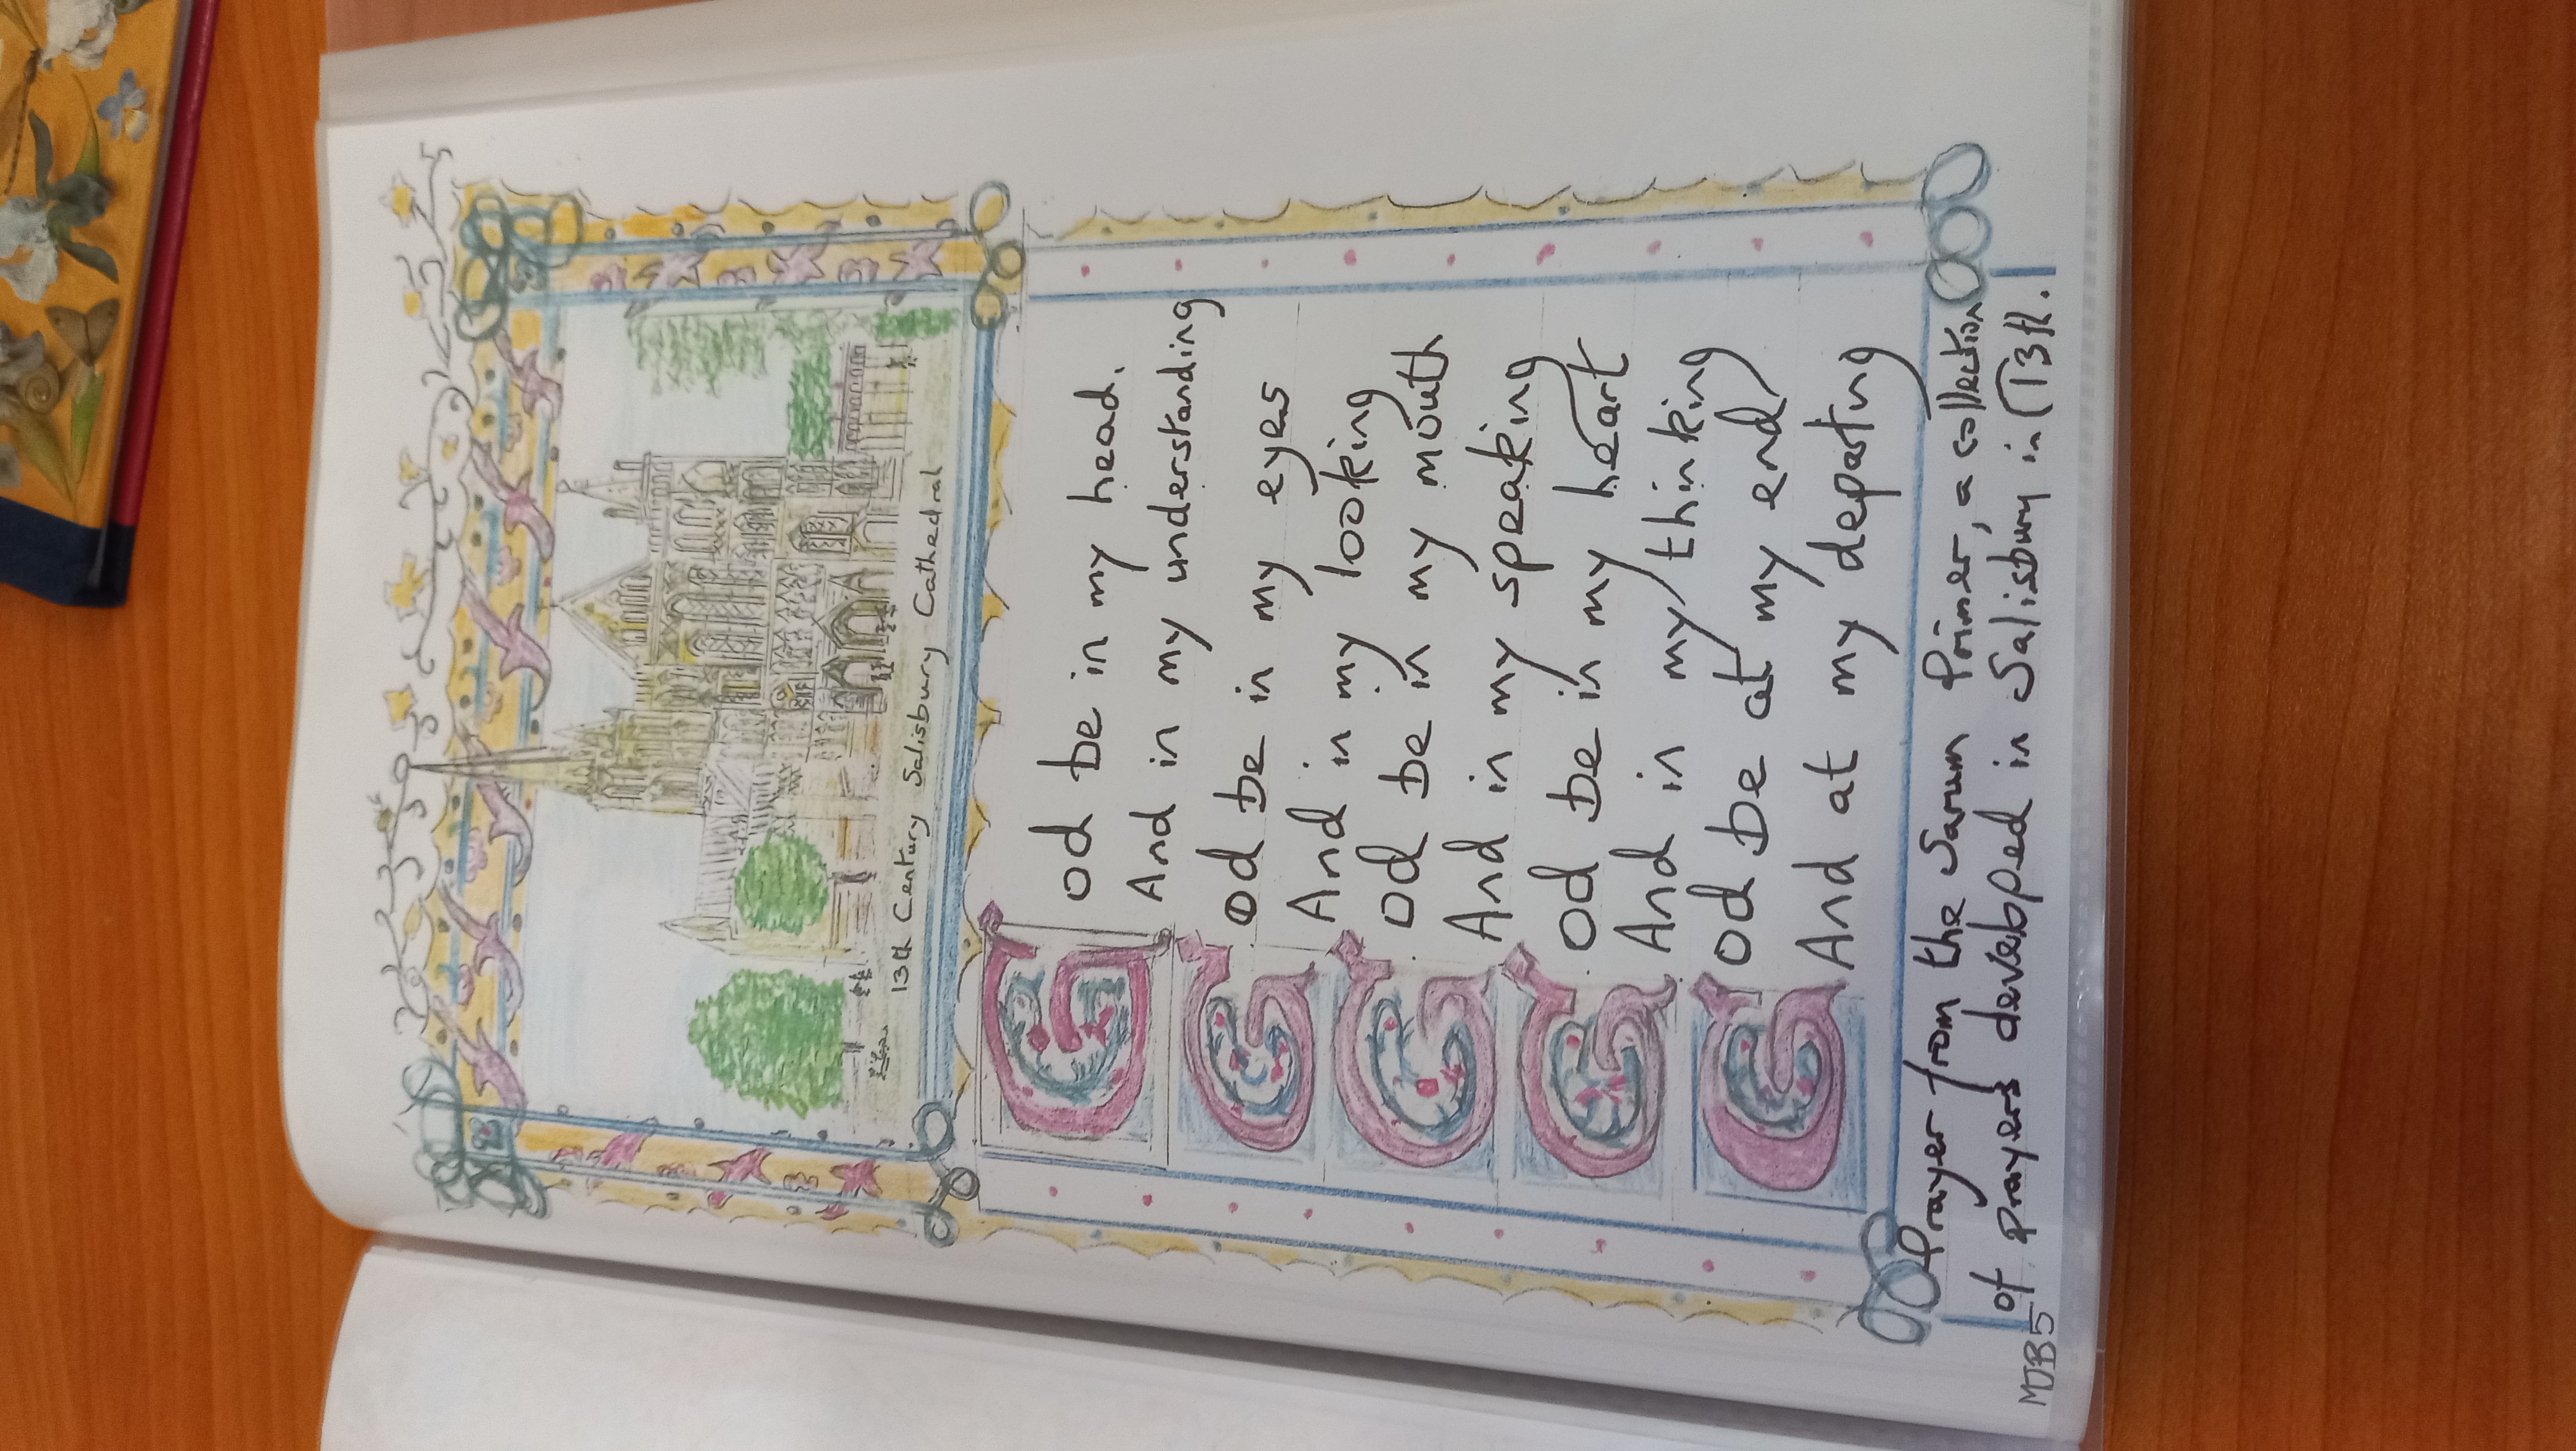 13th Century Salisbury Cathedral
God be in my head.
And in my understanding
God be in my eyes
And in my looking
God be in my mouth
And in my speaking
God be in my heart
And in my thinking
God be at my end
And at my departing
Prayer from the Sarum Primer, a collection
of prayers developed in Salisbury in C13th.
MJB5